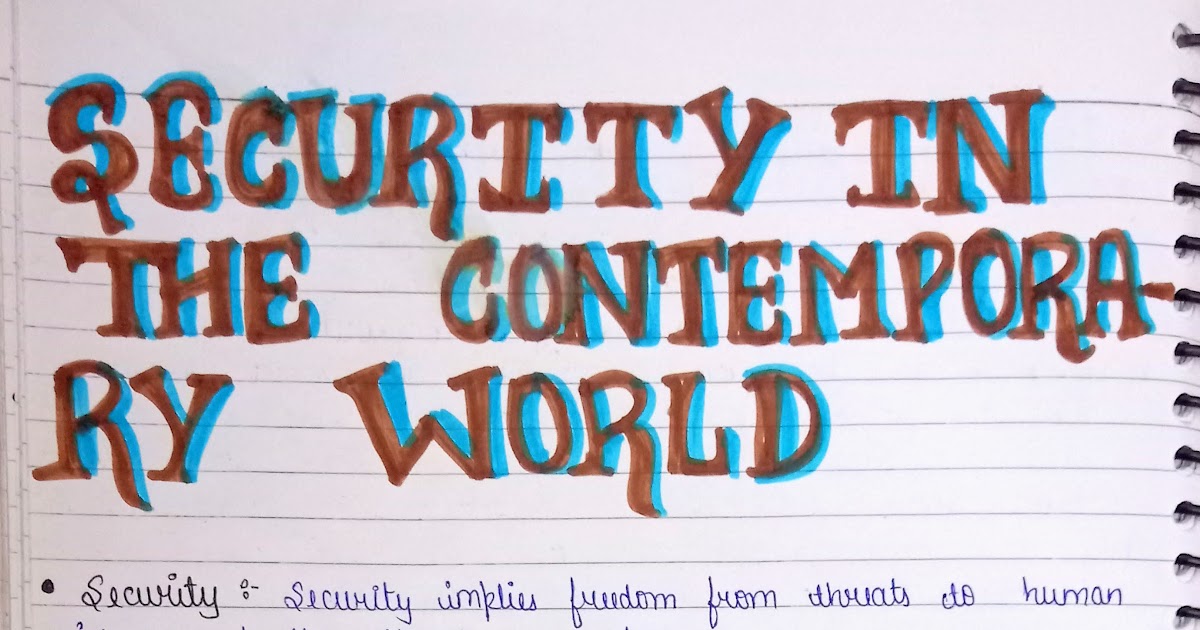 SECURITY IN
THE CONTEMPORA-
RY WORLD
• Security :- Security implies freedom from threats to human